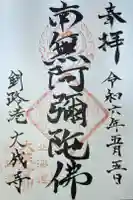 奉拝
令和六年五月五日
南無阿彌陀佛
釧路港大成寺